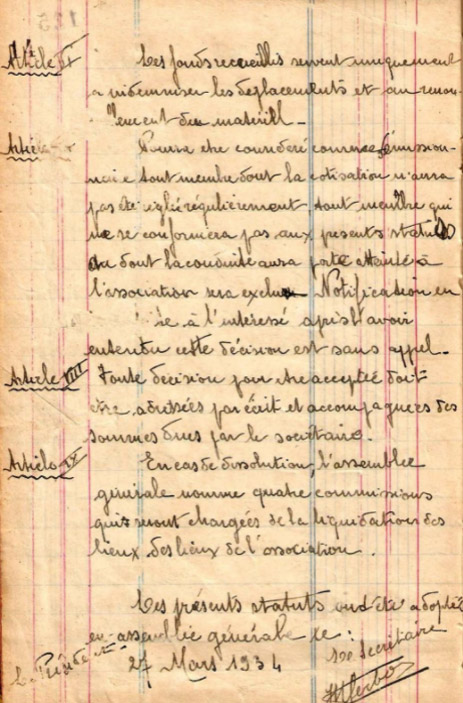 Article VI Les fonds recueillis servent uniquement
a indemniser les déplacements et au renou-
lement du matériel -
Article Pourra etre considéré comme démission-
naie tout membre dont la cotisation n'aura
pas été réglé régulièrement, tout membre qui
ne se conformera pas aux présents statuts
ou dont la conduite aura porté atteinte à
l'association sera exclu Notification en
à l'intéressé après l'avoir
entendu cette décision est sans appel -
Article VIII Toute décision pour etre acceptée doit
etre adressées par écrit et accompagnées des
sommes dues par le sociétaire.
Article IX En cas de dissolution, l'assemblée
générale nomme quatre commissions
qui seront chargées de la liquidation des
lieux des lieux de l'association.
Les présents statuts ont été adopté
en assemblée générale le :
Le Président 27 Mars 1934 Le Secrétaire